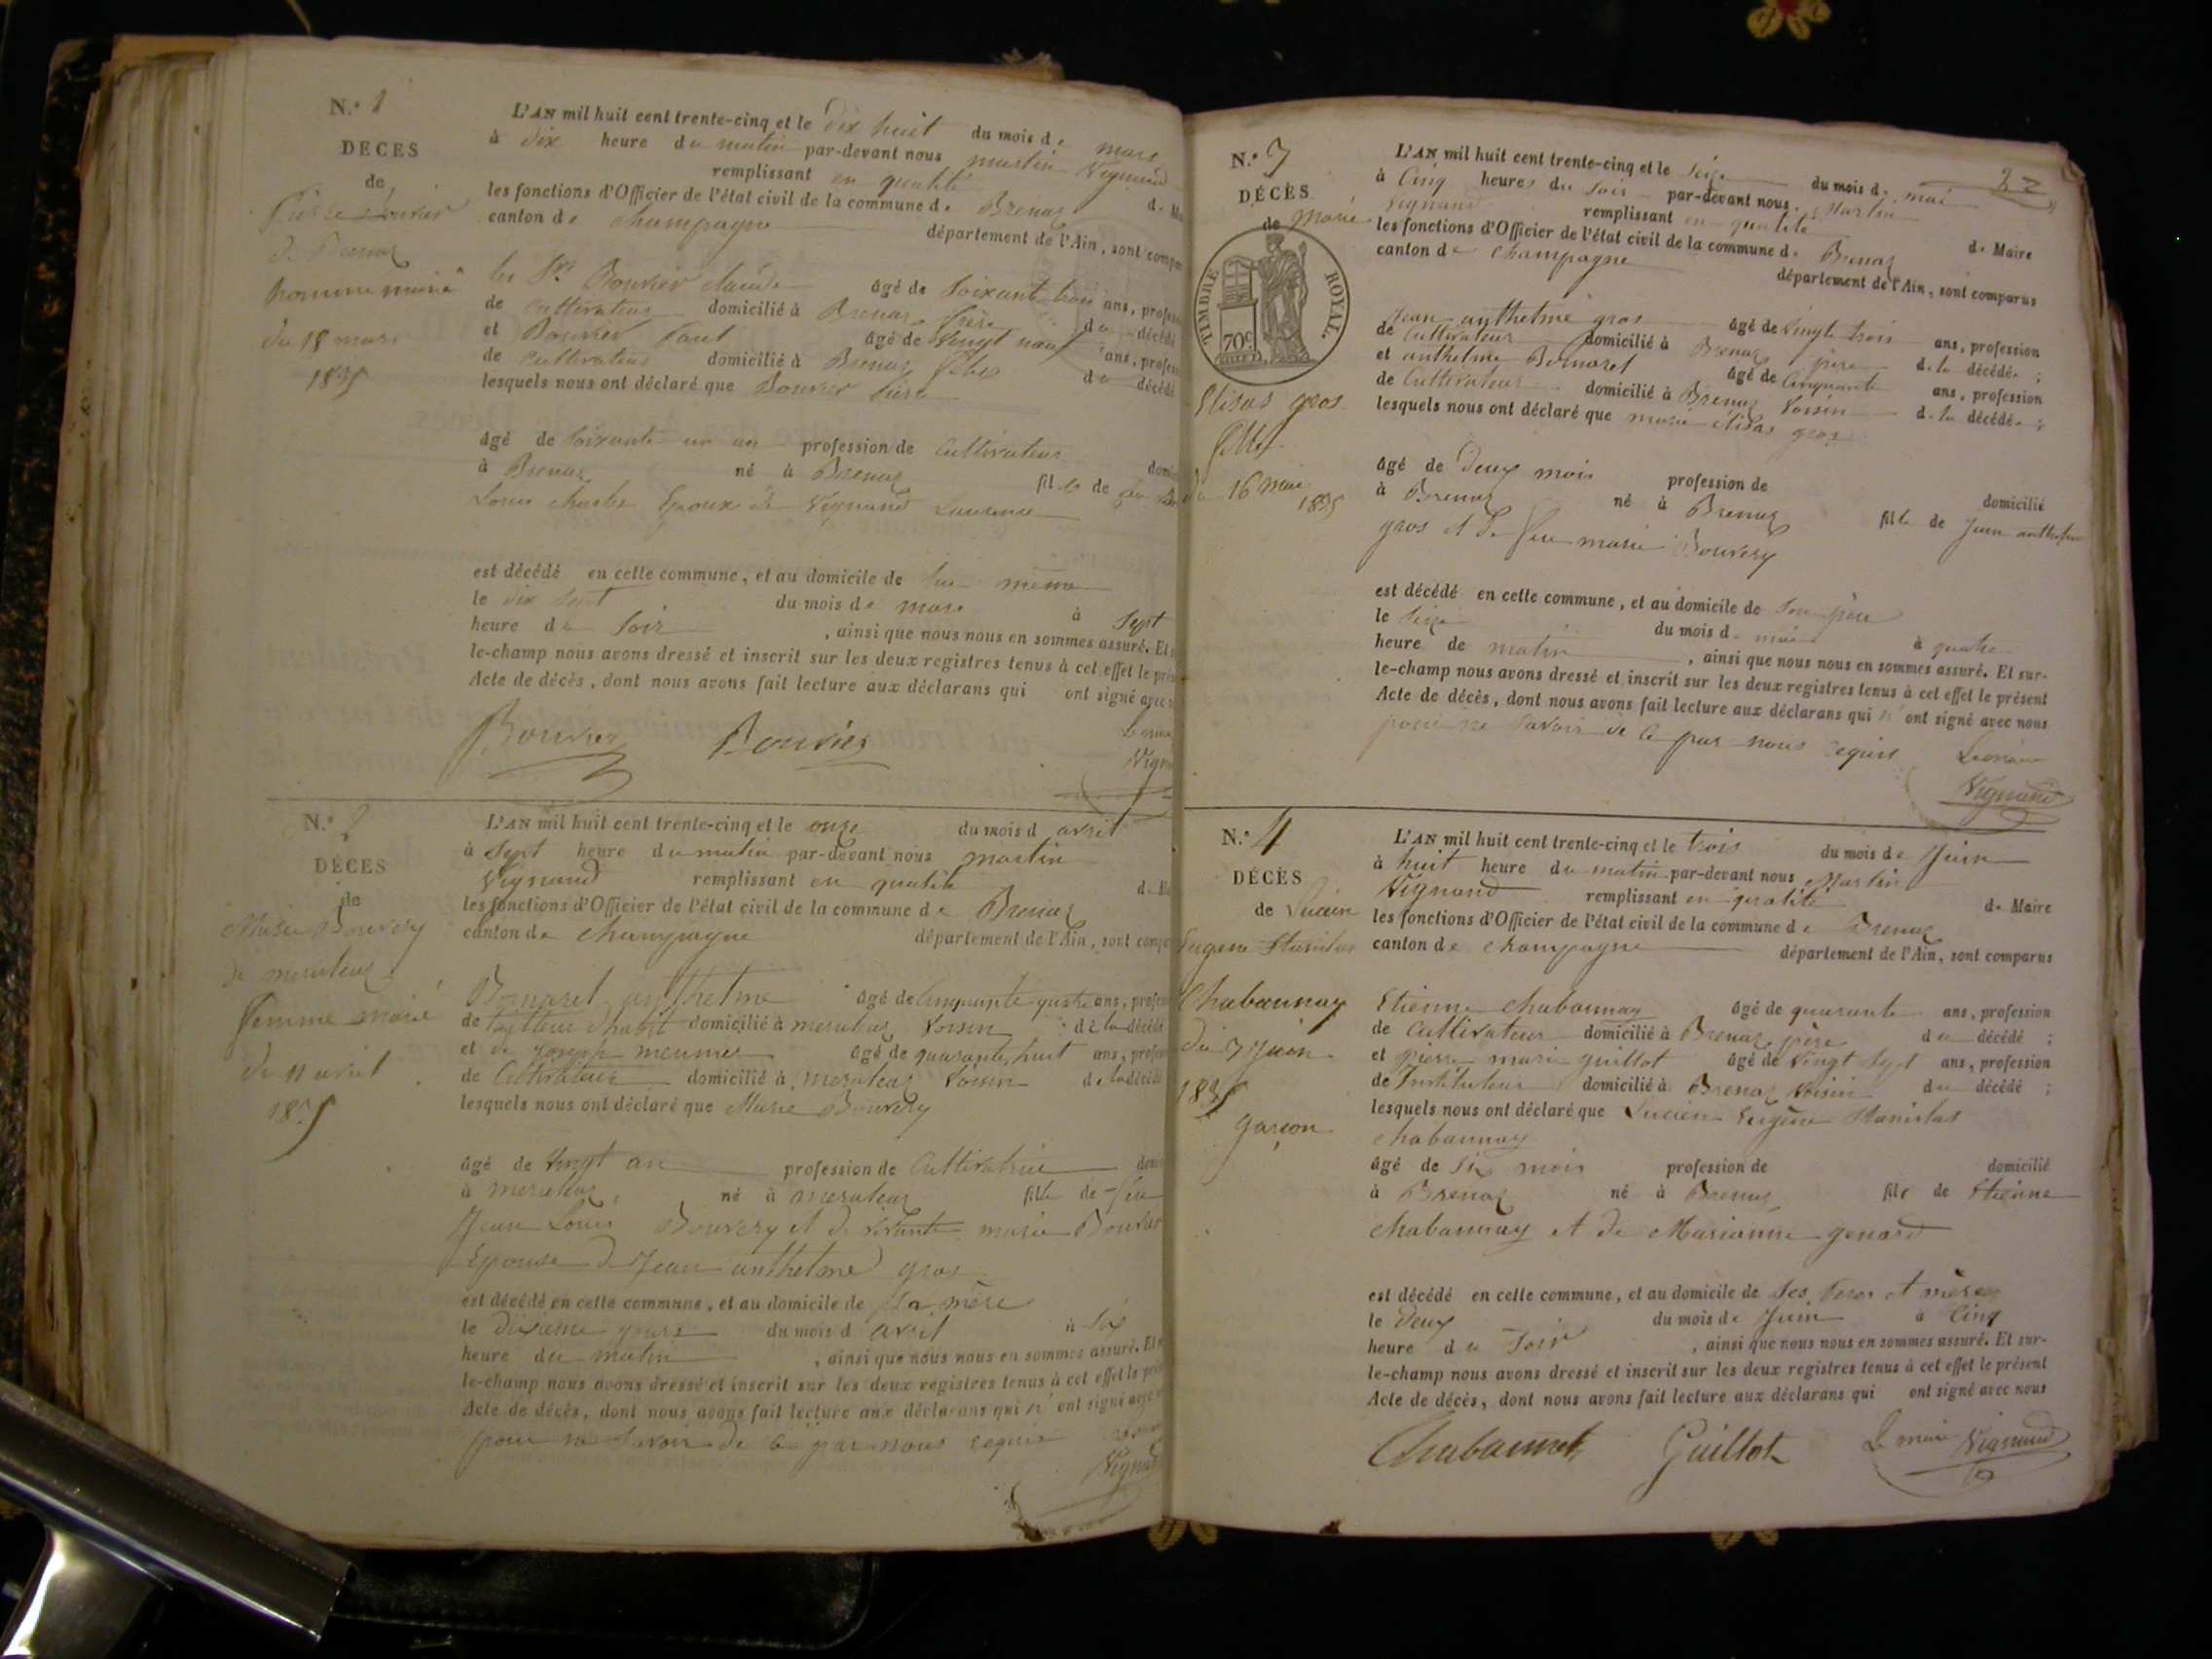 N.º 1
DECES
de
Pierre Bouvier
de Brenaz
homme marié
du 18 mars
1835
L'AN mil huit cent trente-cinq et le dix huit du mois de mars
à dix heure du matin par-devant nous martin Vignand
remplissant en qualité de
les fonctions d'Officier de l'état civil de la commune de Brenaz
canton de Champagne département de l'Ain, sont
les Srs Bouvier claude âgé de soixante trois ans,
de cultivateur domicilié à Brenaz frère du décédé
et Bouvier âgé de vingt neuf ans,
de cultivateur domicilié à Brenaz du décédé
lesquels nous ont déclaré que Bouvier
âgé de soixante un an profession de Cultivateur
à Brenaz né à Brenaz fils de feu
Louis Charles Epoux de Vignand
est décédé en cette commune, et au domicile de lui même
le dix sept du mois de mars à Sept
heure du Soir, ainsi que nous nous en sommes assuré. Et
le-champ nous avons dressé et inscrit sur les deux registres tenus à cet effet le
Acte de décès, dont nous avons fait lecture aux déclarans qui ont signé avec
Bouvier Bouvier
N.º 2
DÉCES
de
Marie Bouvery
de meraleaz
femme marié
du 11 avril
1835
L'AN mil huit cent trente-cinq et le onze du mois d avril
à Sept heure du matin par-devant nous martin
Vignand remplissant en qualité de
les fonctions d'Officier de l'état civil de la commune de Brenaz
canton de Champagne département de l'Ain, sont
Bornarel anthelme âgé de Cinquante quatre ans,
de tailleur d'habit domicilié à meraleaz voisin de la décédé
et de Joseph meunier âgé de quarante huit ans,
de Cultivateur domicilié à meraleaz Voisin de la
lesquels nous ont déclaré que Marie Bouvery
âgé de Vingt an profession de Cultivatrice
à meraleaz né à meraleaz fille de feu
Jean Louis Bouvery et de vivante marie Bouvier
Epouse de Jean anthelme gros
est décédé en cette commune, et au domicile de Sa mère
le dixieme jours du mois d avril à Six
heure du matin, ainsi que nous nous en sommes assuré. Et
le-champ nous avons dressé et inscrit sur les deux registres tenus à cet effet le
Acte de décès, dont nous avons fait lecture aux déclarans qui n' ont signé
pour ne Savoir de ce par nous requis
N.º 3
22
DÉCÈS
de marie
TIMBRE ROYAL.
70c
Elisas gros
fille
du 16 mai
1835
L'AN mil huit cent trente-cinq et le Seize du mois de mai
à Cinq heures du Soir par-devant nous Martin
Vignand remplissant en qualité de Maire
les fonctions d'Officier de l'état civil de la commune de Brenaz
canton de Champagne département de l'Ain, sont comparus
Jean anthelme gros âgé de Vingt trois ans, profession
de Cultivateur domicilié à Brenaz père de la décédée;
et anthelme Bornarel âgé de Cinquante ans, profession
de Cultivateur domicilié à Brenaz Voisin de la décédée;
lesquels nous ont déclaré que marie élisas gros
âgé de Deux mois profession de domicilié
à Brenaz né à Brenaz fille de Jean anthelme
gros et de feu marie Bouvery
est décédé en cette commune, et au domicile de Son père
le Seize du mois de mai à quatre
heure de matin, ainsi que nous nous en sommes assuré. Et sur-
le-champ nous avons dressé et inscrit sur les deux registres tenus à cet effet le présent
Acte de décès, dont nous avons fait lecture aux déclarans qui n' ont signé avec nous
pour ne Savoir de ce par nous requis Le maire
Vignand
N.º 4
DÉCÈS
de Lucien
Eugene Stanislas
Chabannay
du 3 Juin
1835
garçon
L'AN mil huit cent trente-cinq et le trois du mois de Juin
à huit heure du matin par-devant nous Martin
Vignand remplissant en qualité de Maire
les fonctions d'Officier de l'état civil de la commune de Brenaz
canton de Champagne département de l'Ain, sont comparus
Etienne chabannay âgé de quarante ans, profession
de Cultivateur domicilié à Brenaz père du décédé;
et pierre marie guillot âgé de Vingt Sept ans, profession
de Instituteur domicilié à Brenaz Voisin du décédé;
lesquels nous ont déclaré que Lucien Eugène Stanislas
chabannay
âgé de Six mois profession de domicilié
à Brenaz né à Brenaz fils de Etienne
Chabannay et de Marianne genard
est décédé en cette commune, et au domicile de Ses Peres et mères
le Deux du mois de Juin à Cinq
heure du Soir, ainsi que nous nous en sommes assuré. Et sur-
le-champ nous avons dressé et inscrit sur les deux registres tenus à cet effet le présent
Acte de décès, dont nous avons fait lecture aux déclarans qui ont signé avec nous
Guillot Le maire Vignand